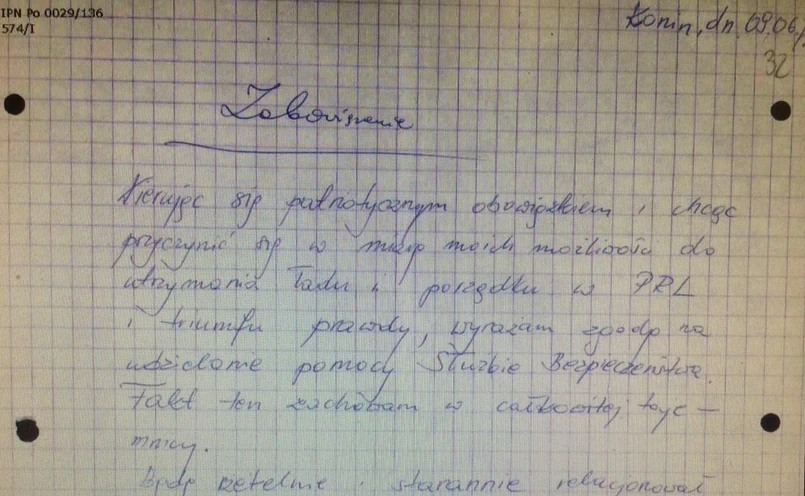 IPN Po 0029/136
574/I
Konin, dn. 09.06.
32
Zobowiązanie
Kierując się patriotycznym obowiązkiem i chcąc
przyczynić się w miarę moich możliwości do
utrzymania ładu i porządku w PRL
i triumfu prawdy, wyrażam zgodę na
udzielanie pomocy Służbie Bezpieczeństwa.
Fakt ten zachowam w całkowitej taje-
mnicy.
Będę rzetelnie i starannie